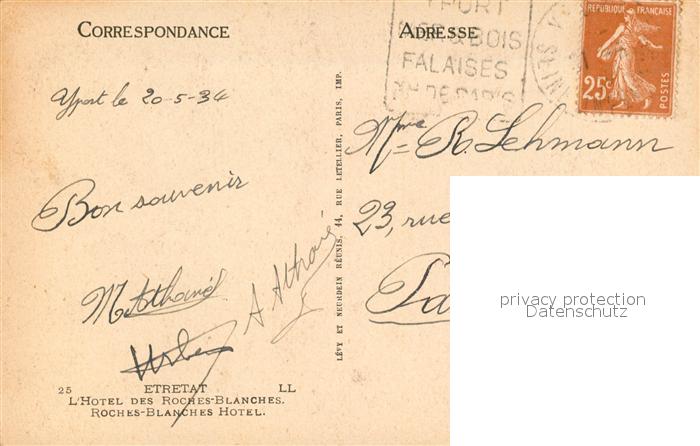 CORRESPONDANCE
ADRESSE
YPORT
MER & BOIS
FALAISES
DE PARIS
REPUBLIQUE FRANÇAISE
25c
POSTES
Yport le 20-5-34
Bon souvenir
Mme R. Lehmann
23, rue
LÉVY ET NEURDEIN RÉUNIS, 44, RUE LETELLIER, PARIS, IMP.
privacy protection
Datenschutz
25 ETRETAT LL
L'HOTEL DES ROCHES-BLANCHES.
ROCHES-BLANCHES HOTEL.